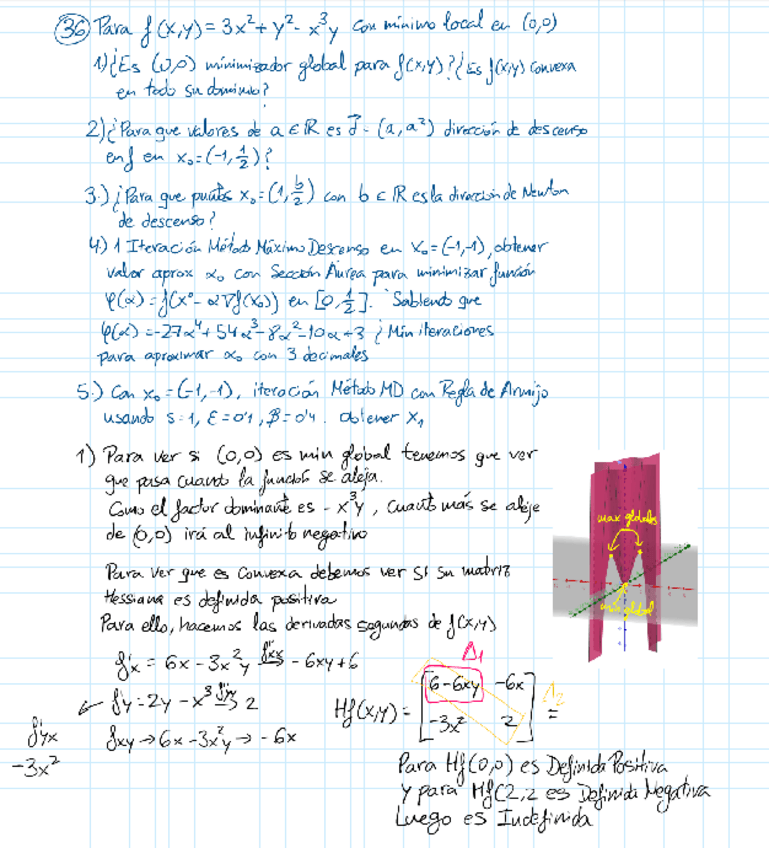 36) Para f(x,y) = 3x² + y² - x³y con mínimo local en (0,0)
1) ¿Es (0,0) minimizador global para f(x,y)? ¿Es f(x,y) convexa
en todo su dominio?
2) ¿Para que valores de a ∈ ℝ es d⃗ - (a, a²) dirección de descenso
en f en x₀ = (-1, 1/2)?
3.) ¿Para que puntos x₀ = (1, b/2) con b ∈ ℝ es la dirección de Newton
de descenso?
4.) 1 Iteración Método Máximo Descenso en x₀ = (-1,-1), obtener
valor aprox α₀ con Sección Áurea para minimizar función
φ(α) = f(x⁰ - α∇f(x₀)) en [0, 1/2]. Sabiendo que
φ(α) = -27α⁴ + 54α³ - 8α² - 10α + 3 ¿Min iteraciones
para aproximar α₀ con 3 decimales
5.) Con x₀ = (-1,-1), iteración Método MD con Regla de Armijo
usando s = 1, ε = 0'1, β = 0'4. Obtener x₁
1) Para ver si (0,0) es min global tenemos que ver
que pasa cuanto la función se aleja.
Como el factor dominante es - x³y, cuanto más se aleje
de (0,0) irá al infinito negativo
max globales
min global
Para ver que es convexa debemos ver si su matriz
Hessiana es definida positiva
Para ello, hacemos las derivadas segundas de f(x,y)
f'x = 6x - 3x²y f''xx → - 6xy + 6
f'y = 2y - x³ f''yy → 2
f''yx
-3x²
fxy → 6x - 3x²y → - 6x
Δ₁
Hf(x,y) = [6-6xy -6x
-3x² 2] =
Δ₂
Para Hf(0,0) es Definida Positiva
y para Hf(2,2 es Definida Negativa
Luego es Indefinida